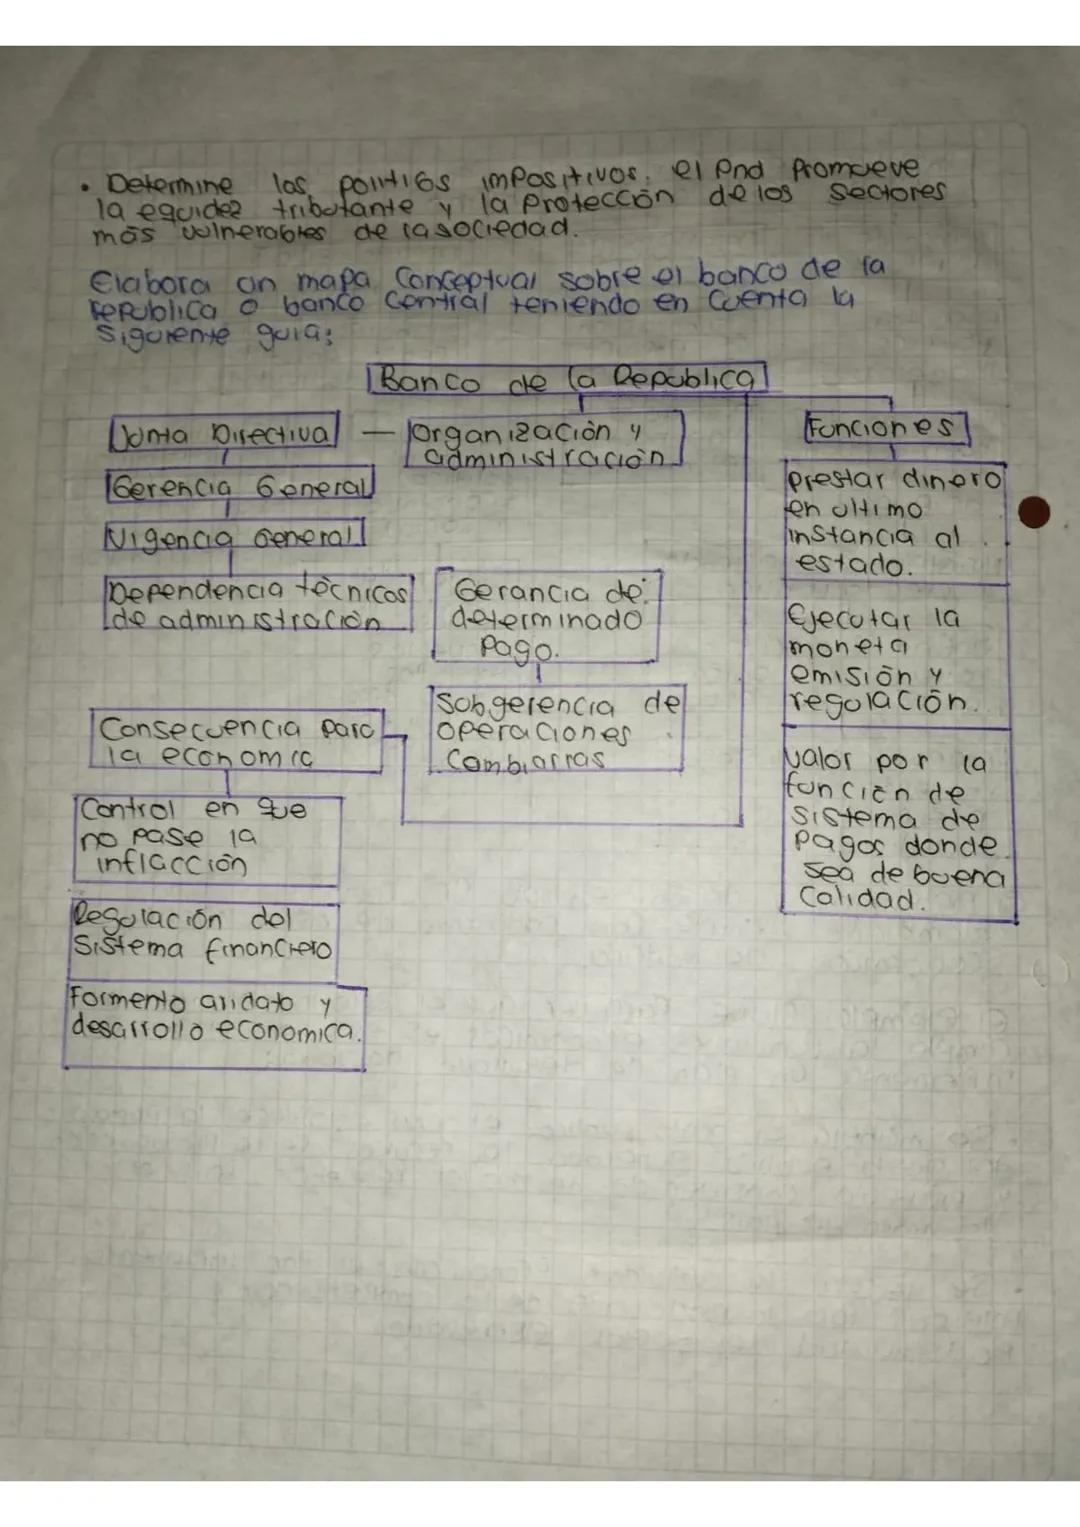 • Determine las politi6s impositivos. el Pnd Promueve
la equidez tributante y la Protección de los sectores
más vulnerables de la sociedad.
Elabora un mapa Conceptual sobre el banco de la
republica o banco Central teniendo en Cuenta la
Siguiente guia:
Banco de la Republica
Junta Directiva — Organización y
administración
Funciones
Gerencia General
Vigencia General
Dependencia tècnicos
de administración
Gerancia de
determinado
Pago.
Subgerencia de
operaciones
Cambiarras
prestar dinero
en ultimo
instancia al
estado.
Ejecutar la
moneta
emisión y
regulación.
valor por la
función de
sistema de
Pagos donde
sea de buena
Calidad.
Consecuencia para
la economic
Control en que
no pase la
inflacción
Regulación del
Sistema financiero
Formento y
desarrollo economica.